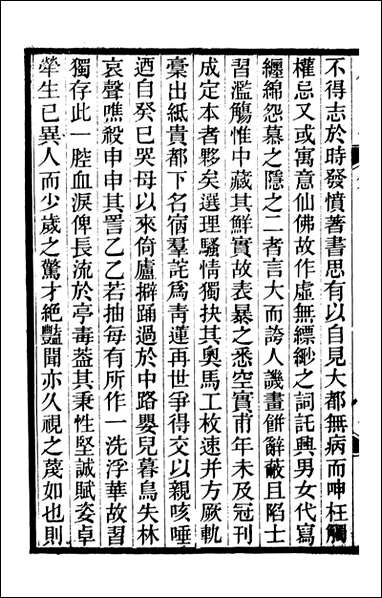 不得志於時發憤著書思有以自見大都無病而呻枉觸
權忌又或寓意仙佛故作虛無縹緲之詞託興男女代寫
纏綿怨慕之隱之二者言大而誇人譏畫餅辭蔽且陷士
習濫觴惟中藏其鮮實故表暴之悉空實甫年未及冠刊
成定本者夥矣選理騷情獨抉其奧馬工枚速并方厥軌
稾出紙貴都下名宿羣詫爲靑蓮再世爭得交以親咳唾
迺自癸巳哭母以來倚廬擗踊過於中路嬰兒暮鳥失林
哀聲噍殺申申其詈乙乙若抽每有所作一洗浮華故習
獨存此一腔血淚俾長流於亭毒葢其秉性堅誠賦姿卓
犖生已異人而少歲之驚才絕豔聞亦久視之蔑如也則